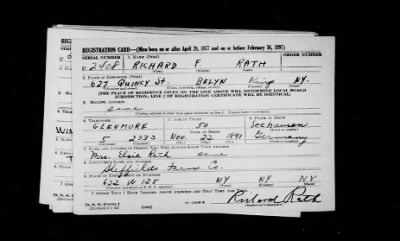 REGISTRATION CARD—(Men born on or after April 28, 1877 and on or before February 16, 1897)
SERIAL NUMBER 1. NAME (Print)
2408 RICHARD F. RATH
2. PLACE OF RESIDENCE (Print)
627 QUINCY St. BKLYN Kings NY.
[THE PLACE OF RESIDENCE GIVEN ON THE LINE ABOVE WILL DETERMINE LOCAL BOARD
JURISDICTION; LINE 2 OF REGISTRATION CERTIFICATE WILL BE IDENTICAL]
3. MAILING ADDRESS
Same
4. TELEPHONE 5. AGE IN YEARS 6. PLACE OF BIRTH
GLENMORE 50
DATE OF BIRTH
5 2333 Nov. 22 1891 Germany
7. NAME AND ADDRESS OF PERSON WHO WILL ALWAYS KNOW YOUR ADDRESS
Mrs. Elsie Rath Same
8. EMPLOYER'S NAME AND ADDRESS
Sheffields Farms Co.
9. PLACE OF EMPLOYMENT OR BUSINESS
632 W 125 NY NY NY
I AFFIRM THAT I HAVE VERIFIED ABOVE ANSWERS AND THAT THEY ARE TRUE.
D. S. S. Form 1
Richard Rath